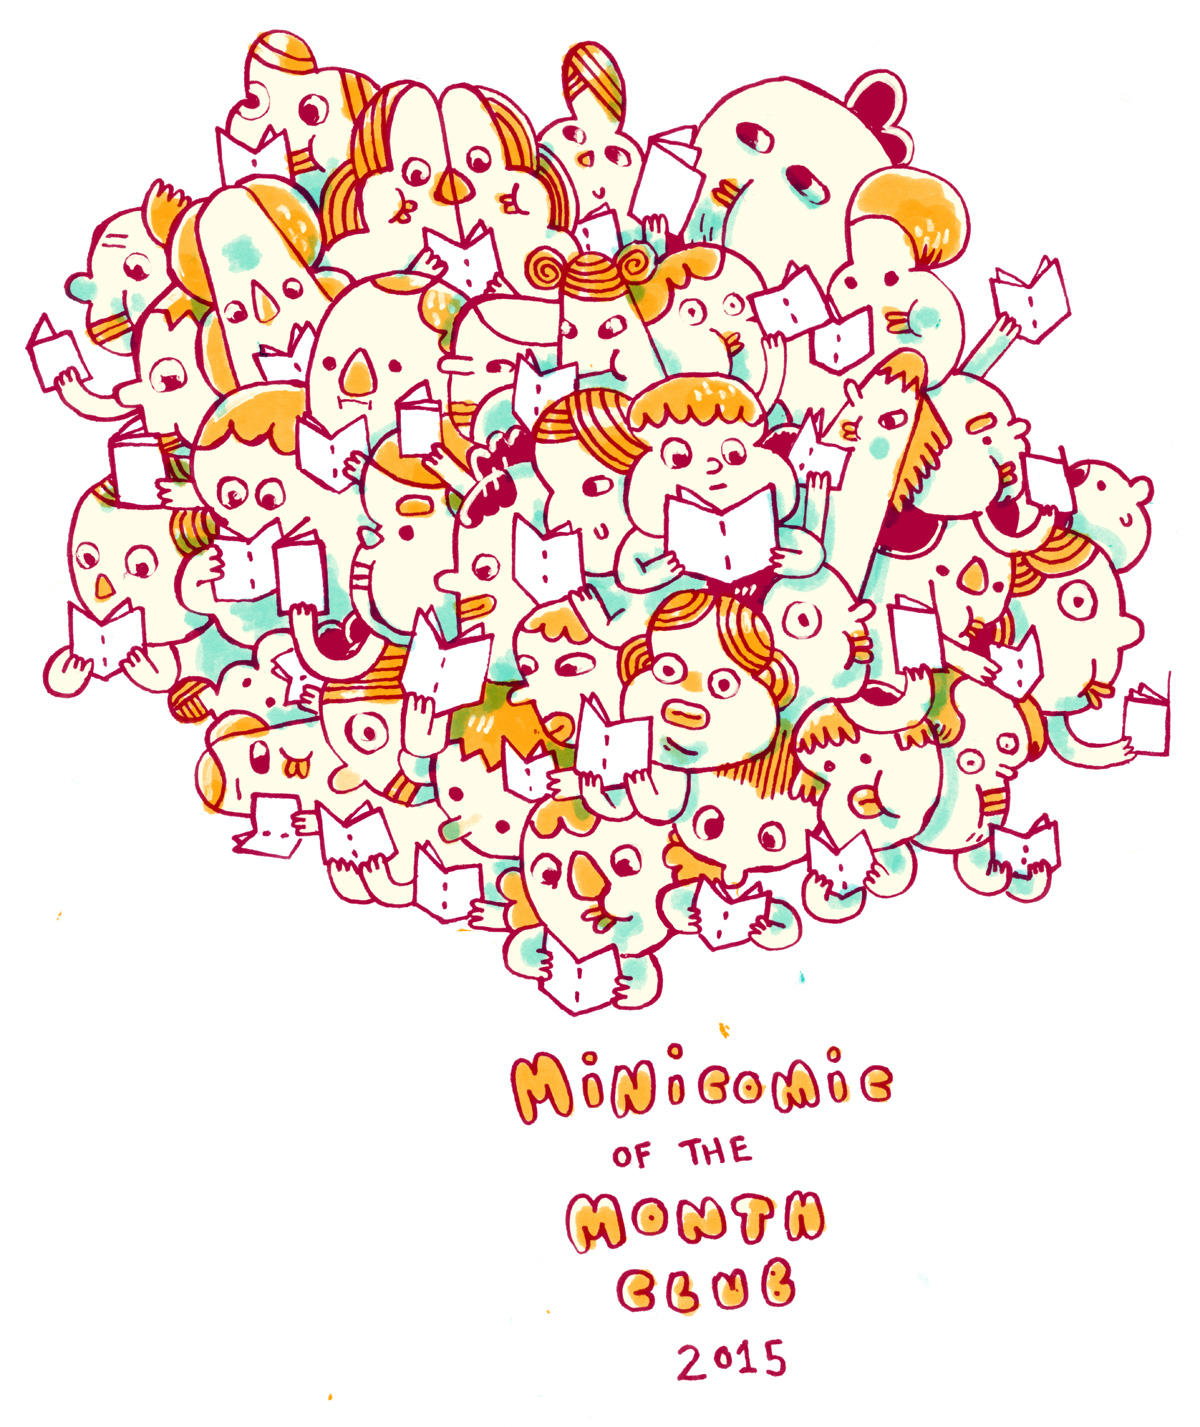 MiNiCOMiC
OF THE
MONTH
CLUB
2015